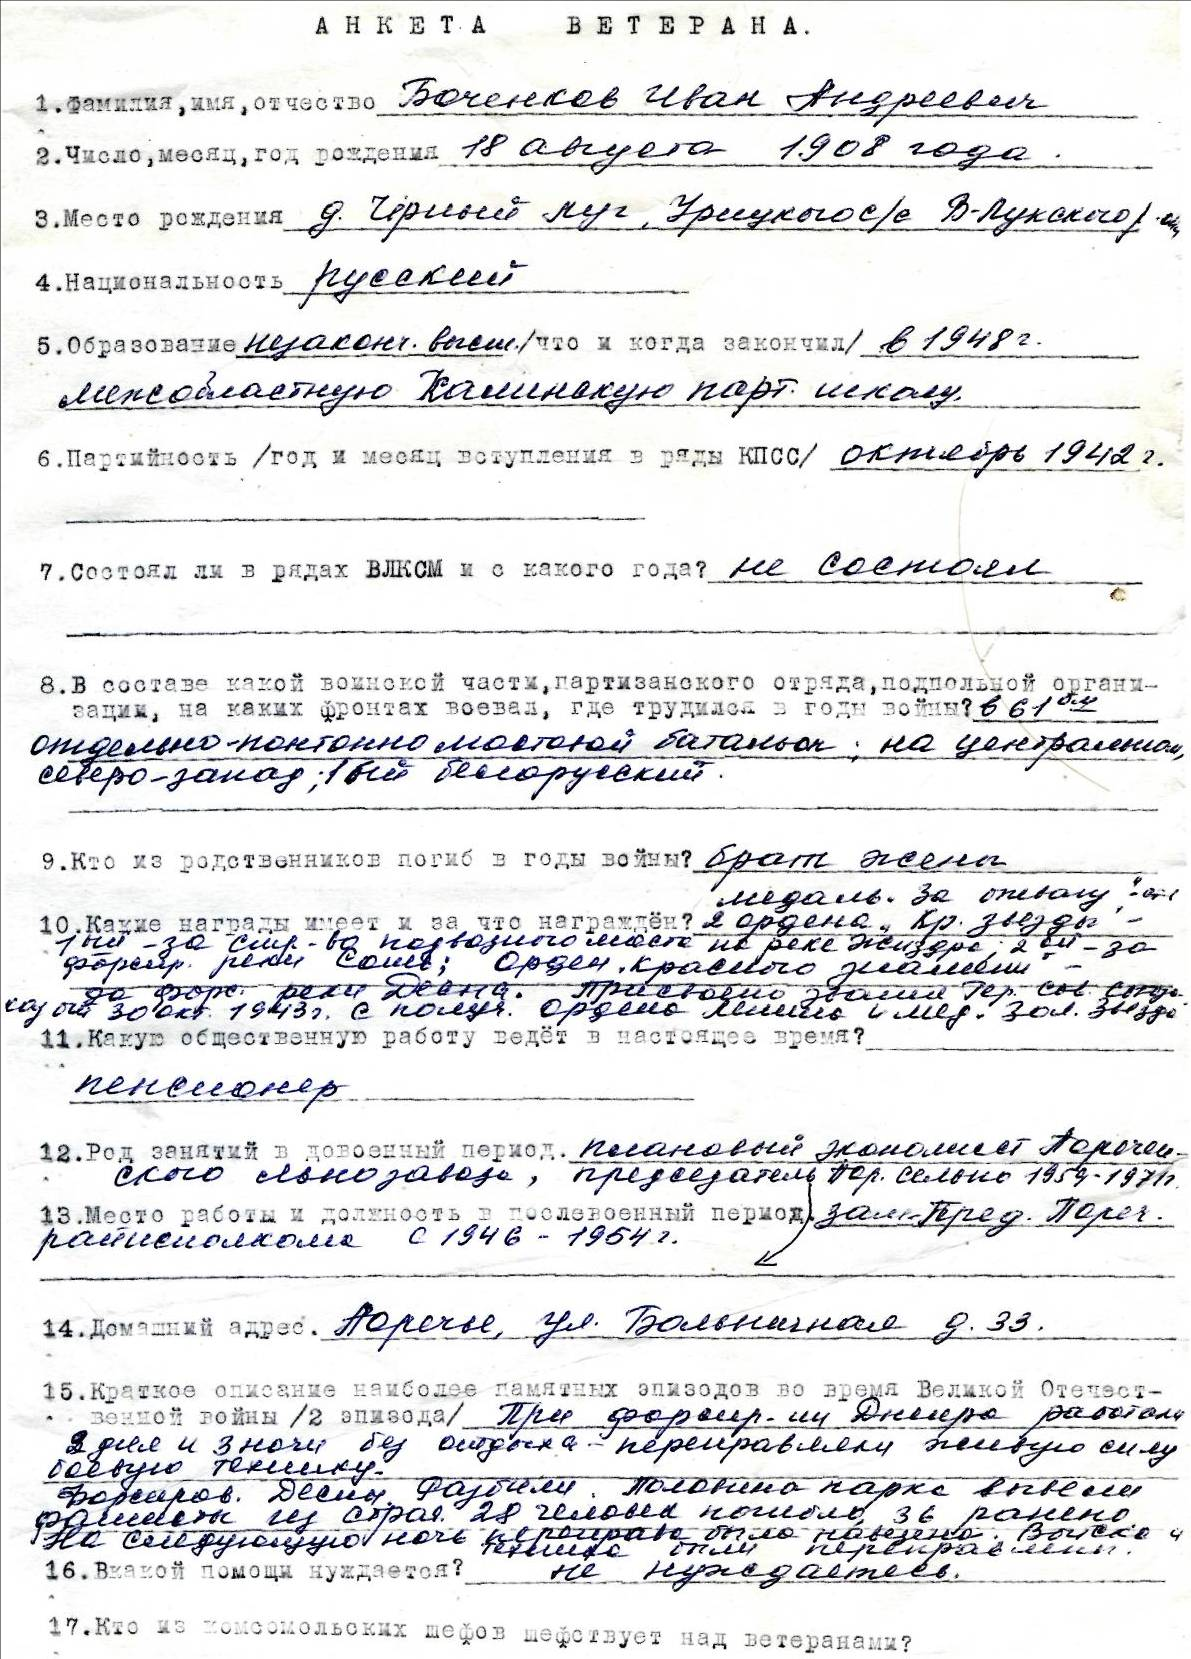 АНКЕТА ВЕТЕРАНА.
1.Фамилия,имя,отчество Боченков Иван Андреевич
2.Число,месяц,год рождения 18 августа 1908 года.
3.Место рождения д. Чёрный луг, Урицкого с/с В-Лукского р-
4.Национальность русский
5.Образование незаконч. высш./что и когда закончил/ в 1948г.
межобластную Калининскую парт. школу.
6.Партийность /год и месяц вступления в ряды КПСС/ октябрь 1942г.
7.Состоял ли в рядах ВЛКСМ и с какого года? не состоял
8.В составе какой воинской части,партизанского отряда,подпольной органи-
зации, на каких фронтах воевал, где трудился в годы войны? в 61ом
отдельно-понтонно мостовой батальон; на центральном,
северо-запад; 1ый белорусский.
9.Кто из родственников погиб в годы войны? брат жены
медаль "За отвагу"
10.Какие награды имеет и за что награждён? 2 ордена "Кр. звезды" -
1ый - за стр-во подвозного моста на реке Жиздра; 2ой - за
форсир. реки Сож; Орден "красного знамени" -
за форс. реки Десна. Присвоено звание Гер. Сов. Союза
30 окт. 1943г. с получ. ордена Ленина и мед. Зол. Звезда
11.Какую общественную работу ведёт в настоящее время?
пенсионер
12.Род занятий в довоенный период. плановый экономист Поречен-
ского льнозавода, председатель Пор. сельпо 1954-1971г.
13.Место работы и должность в послевоенный период. зам. Пред. Пореч.
райисполкома с 1946 - 1954г.
14.Домашний адрес. Поречье, ул. Больничная д. 33.
15.Краткое описание наиболее памятных эпизодов во время Великой Отечест-
венной войны /2 эпизода/ При форсир-ии Днепра работали
2 дня и 3 ночи без отдыха - переправляли живую силу
боевую технику.
Форсиров. Десны. Разбили. Половина парка вывели
фашисты из строя. 28 человек погибло, 36 ранено
На следующую ночь переправа была наведена. Войска и
техника были переправлены.
16.Вкакой помощи нуждается? не нуждаетесь.
17.Кто из комсомольских шефов шефствует над ветеранами?